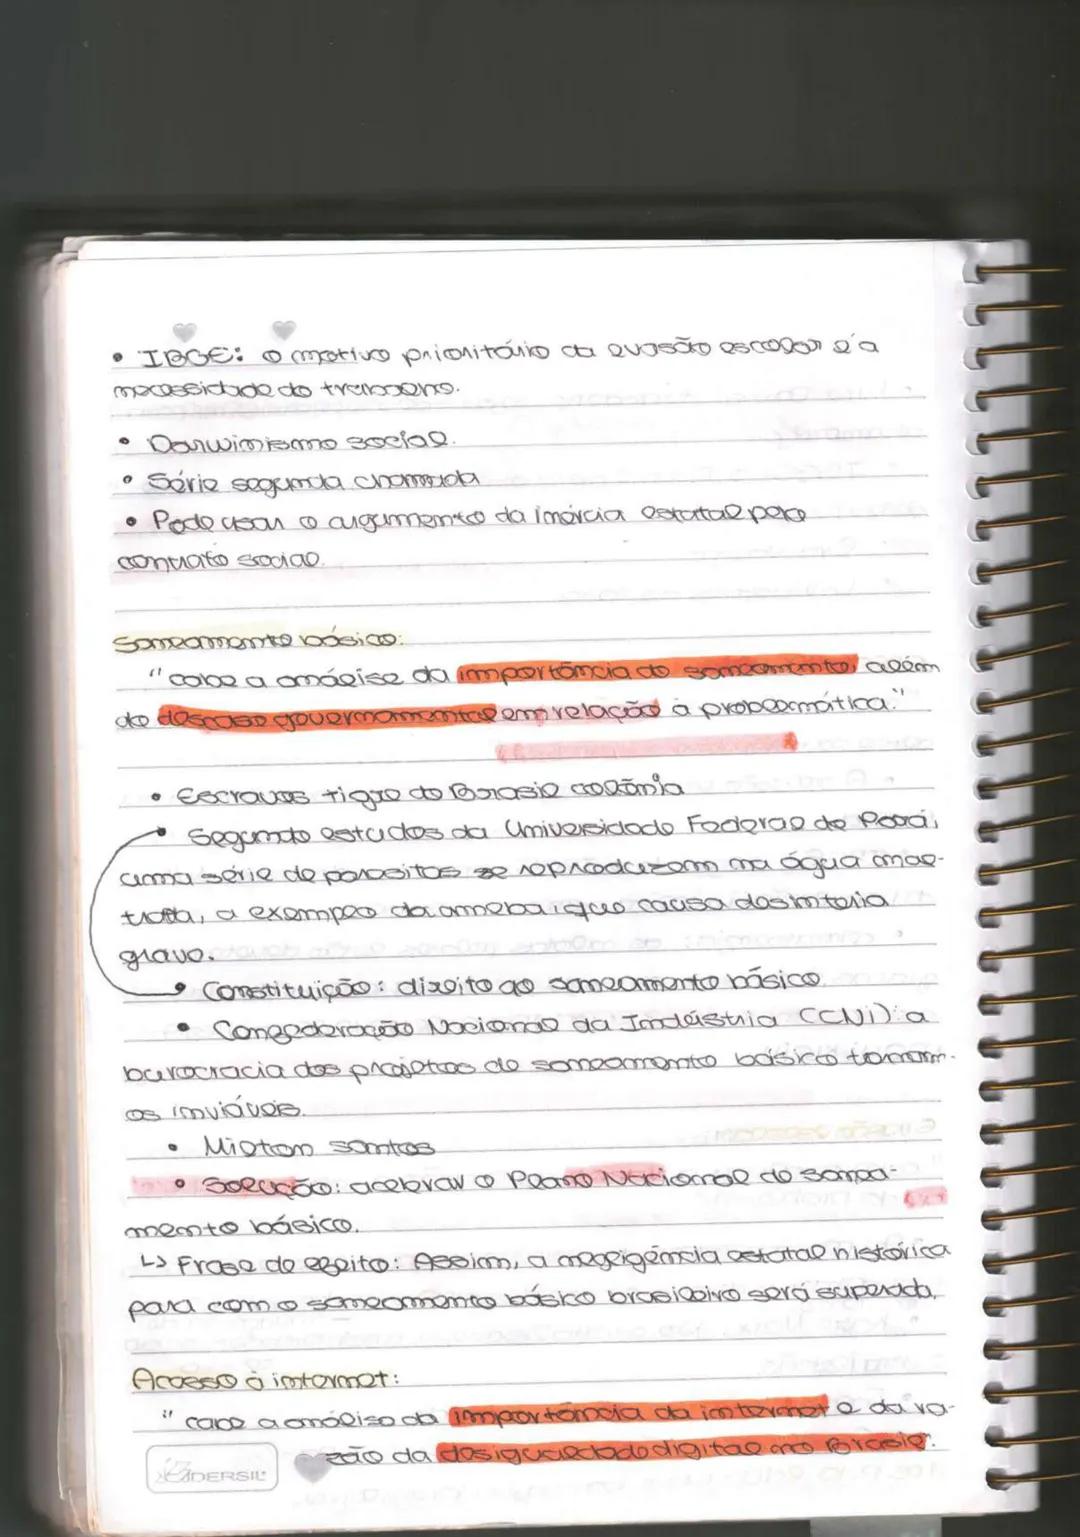 • IBGE: o motivo prioritário da evasão escolar é a
necessidade do trabalho.
• Darwinismo social.
• Série segunda chamada
• Pode usar o argumento da inércia estatal pelo
contrato social.
Saneamento básico:
"cabe a análise da importância do saneamento, além
do descaso governamental em relação à problemática."
• Escravos tigre do Brasil colônia
• Segundo estudos da Universidade Federal do Pará,
uma série de parasitas se reproduzem na água mal-
tratta, a exemplo da ameba, que causa desinteria
grave.
• Constituição: direito ao saneamento básico.
• Confederação Nacional da Indústria (CNI): a
burocracia dos projetos de saneamento básico tornam-
os inviáveis.
• Milton Santos
• Solução: acelerar o Plano Nacional de Sanea-
mento básico.
↳ Frase de efeito: Assim, a negligência estatal histórica
para com o saneamento básico brasileiro será superada.
Acesso à internet:
"cabe a análise da importância da internet e da ra-
zão da desigualdade digital no Brasil".